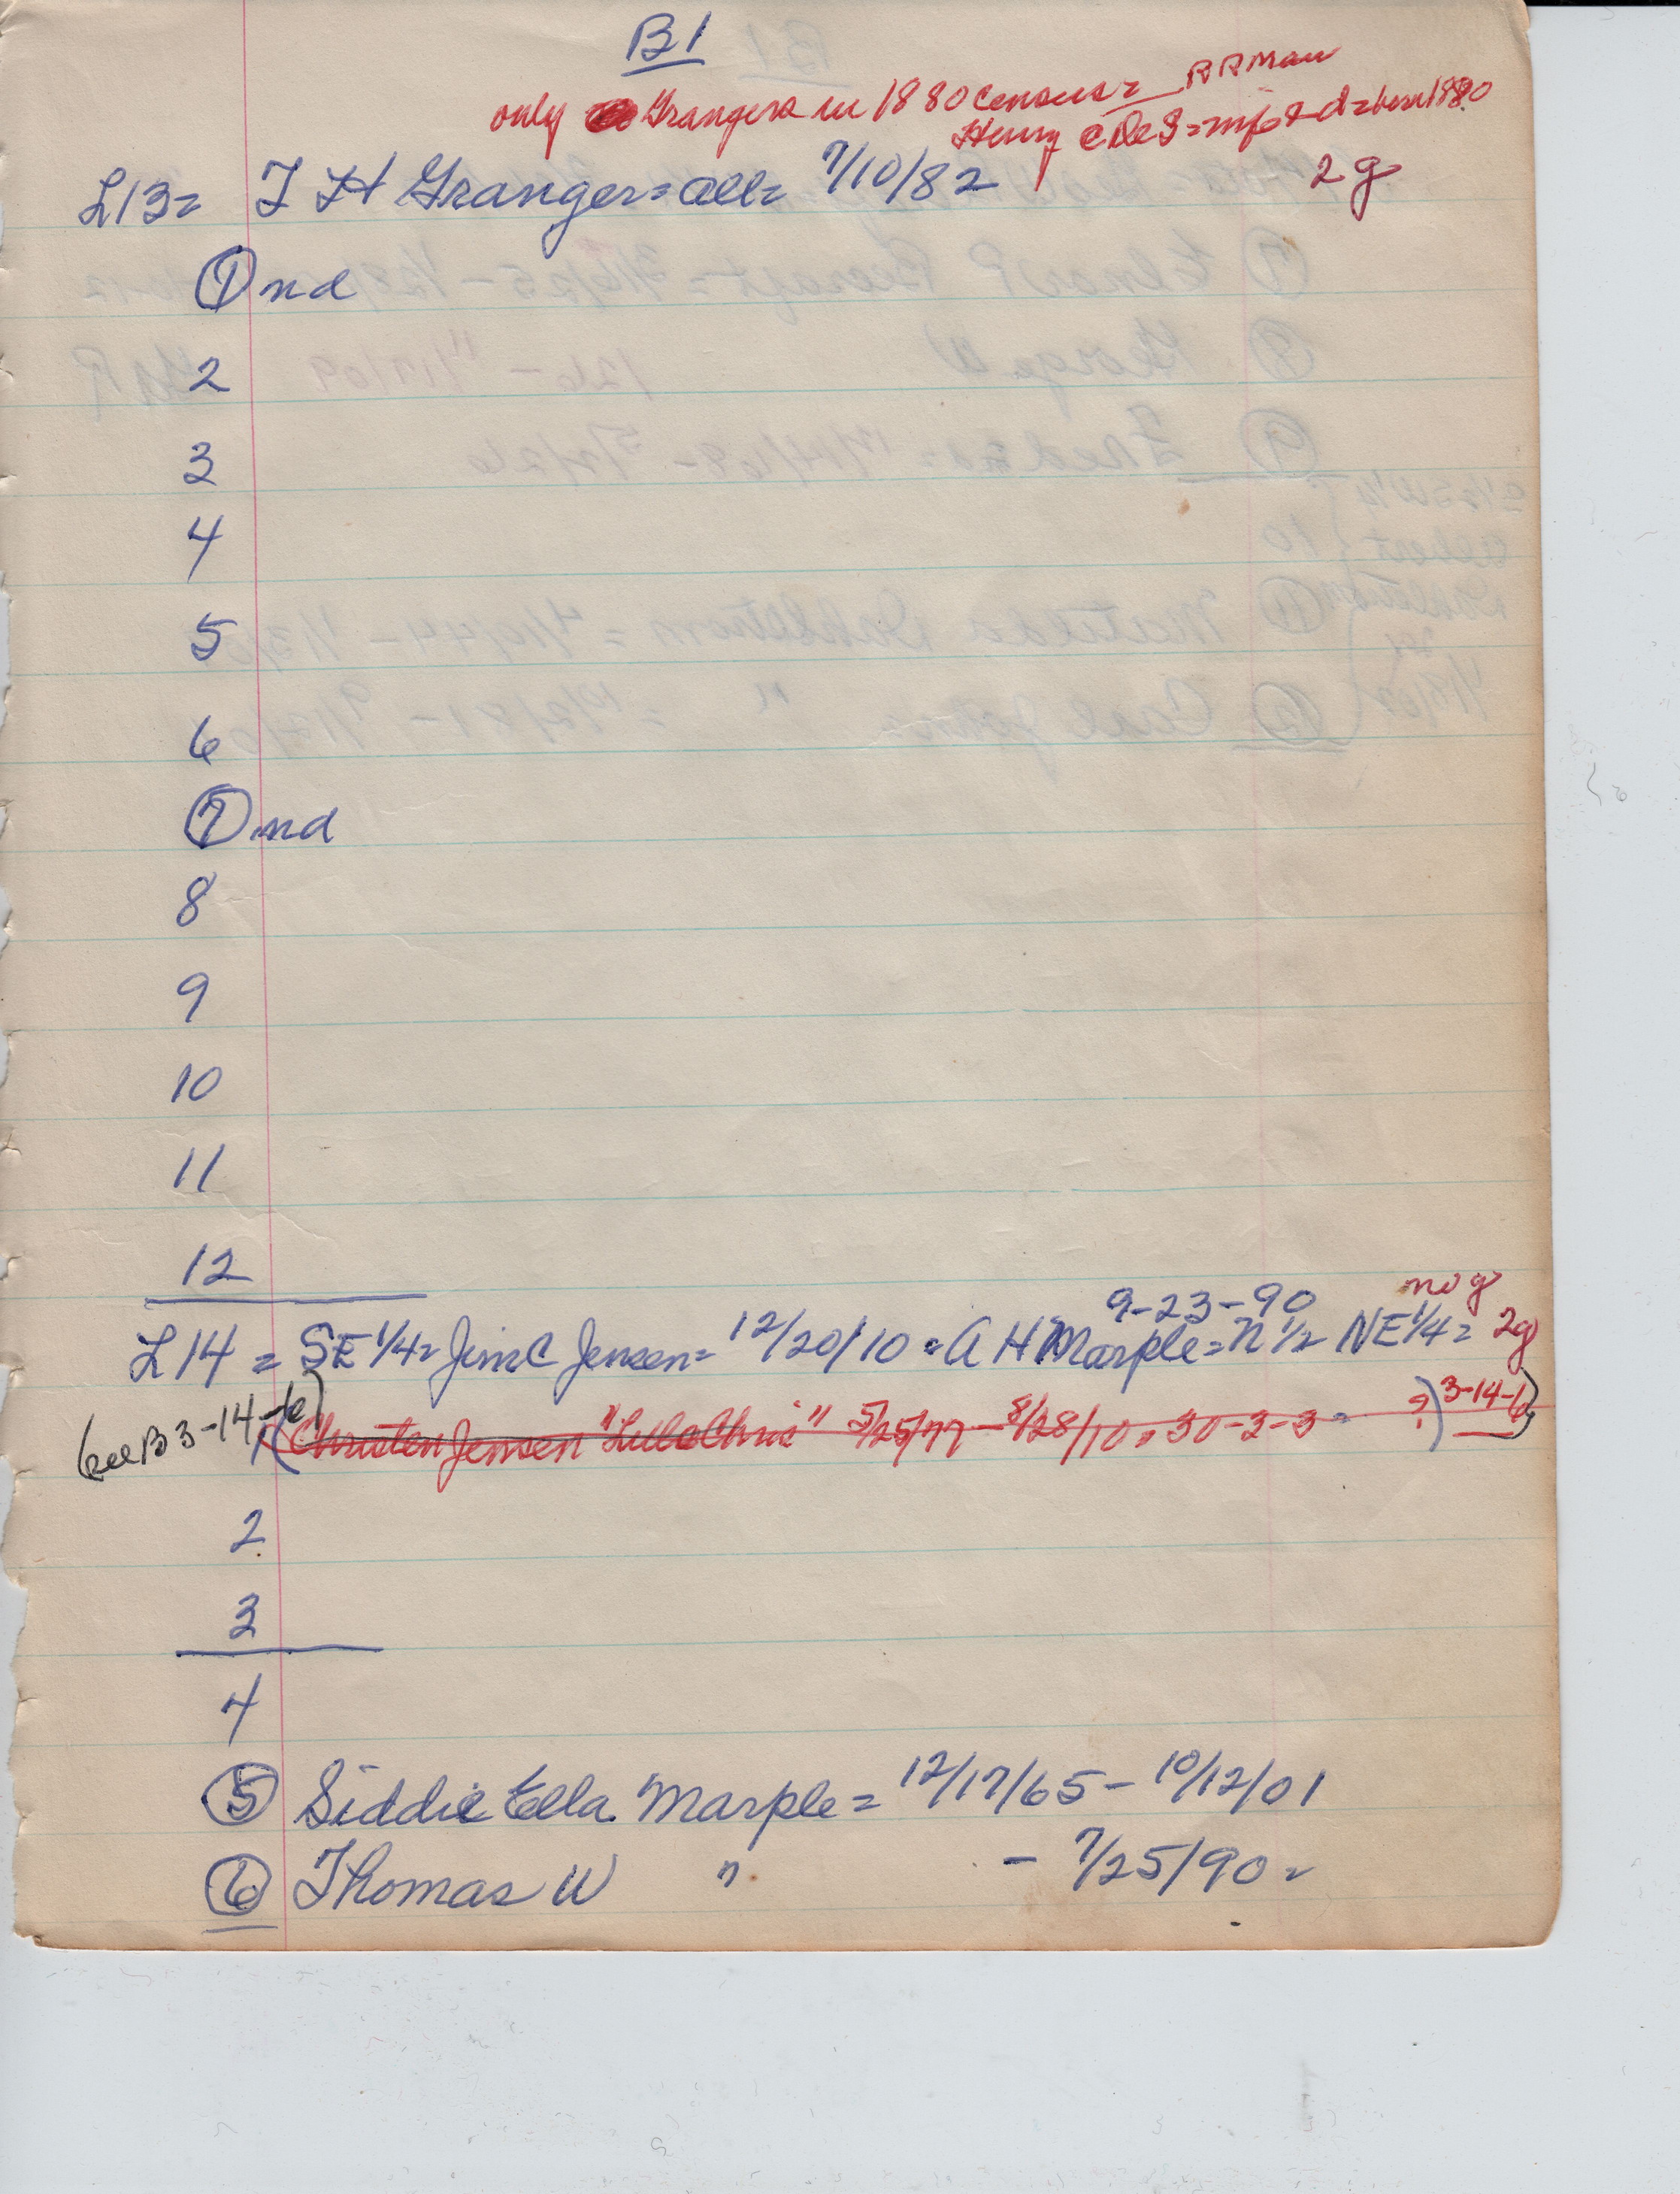 B1
only Grangers in 1880 census = RR Man
Henry C De S = m f 8 d = born 1880
L13 = T H Granger = all = 7/10/82 2g
① nd
2
3
4
5
6
⑦ nd
8
9
10
11
12
9-23-90 no g
L14 = SE 1/4 = Jim C Jensen = 12/20/10 = A H Marple = N 1/2 NE 1/4 = 2g
(see B3-14-6) 1 (Christen Jensen "Little Chris" 5/25/77 - 8/28/10 = 30-3-3 = ?) 3-14-6)
2
3
4
⑤ Siddie Ella Marple = 12/17/65 - 10/12/01
⑥ Thomas W " - 7/25/90 =